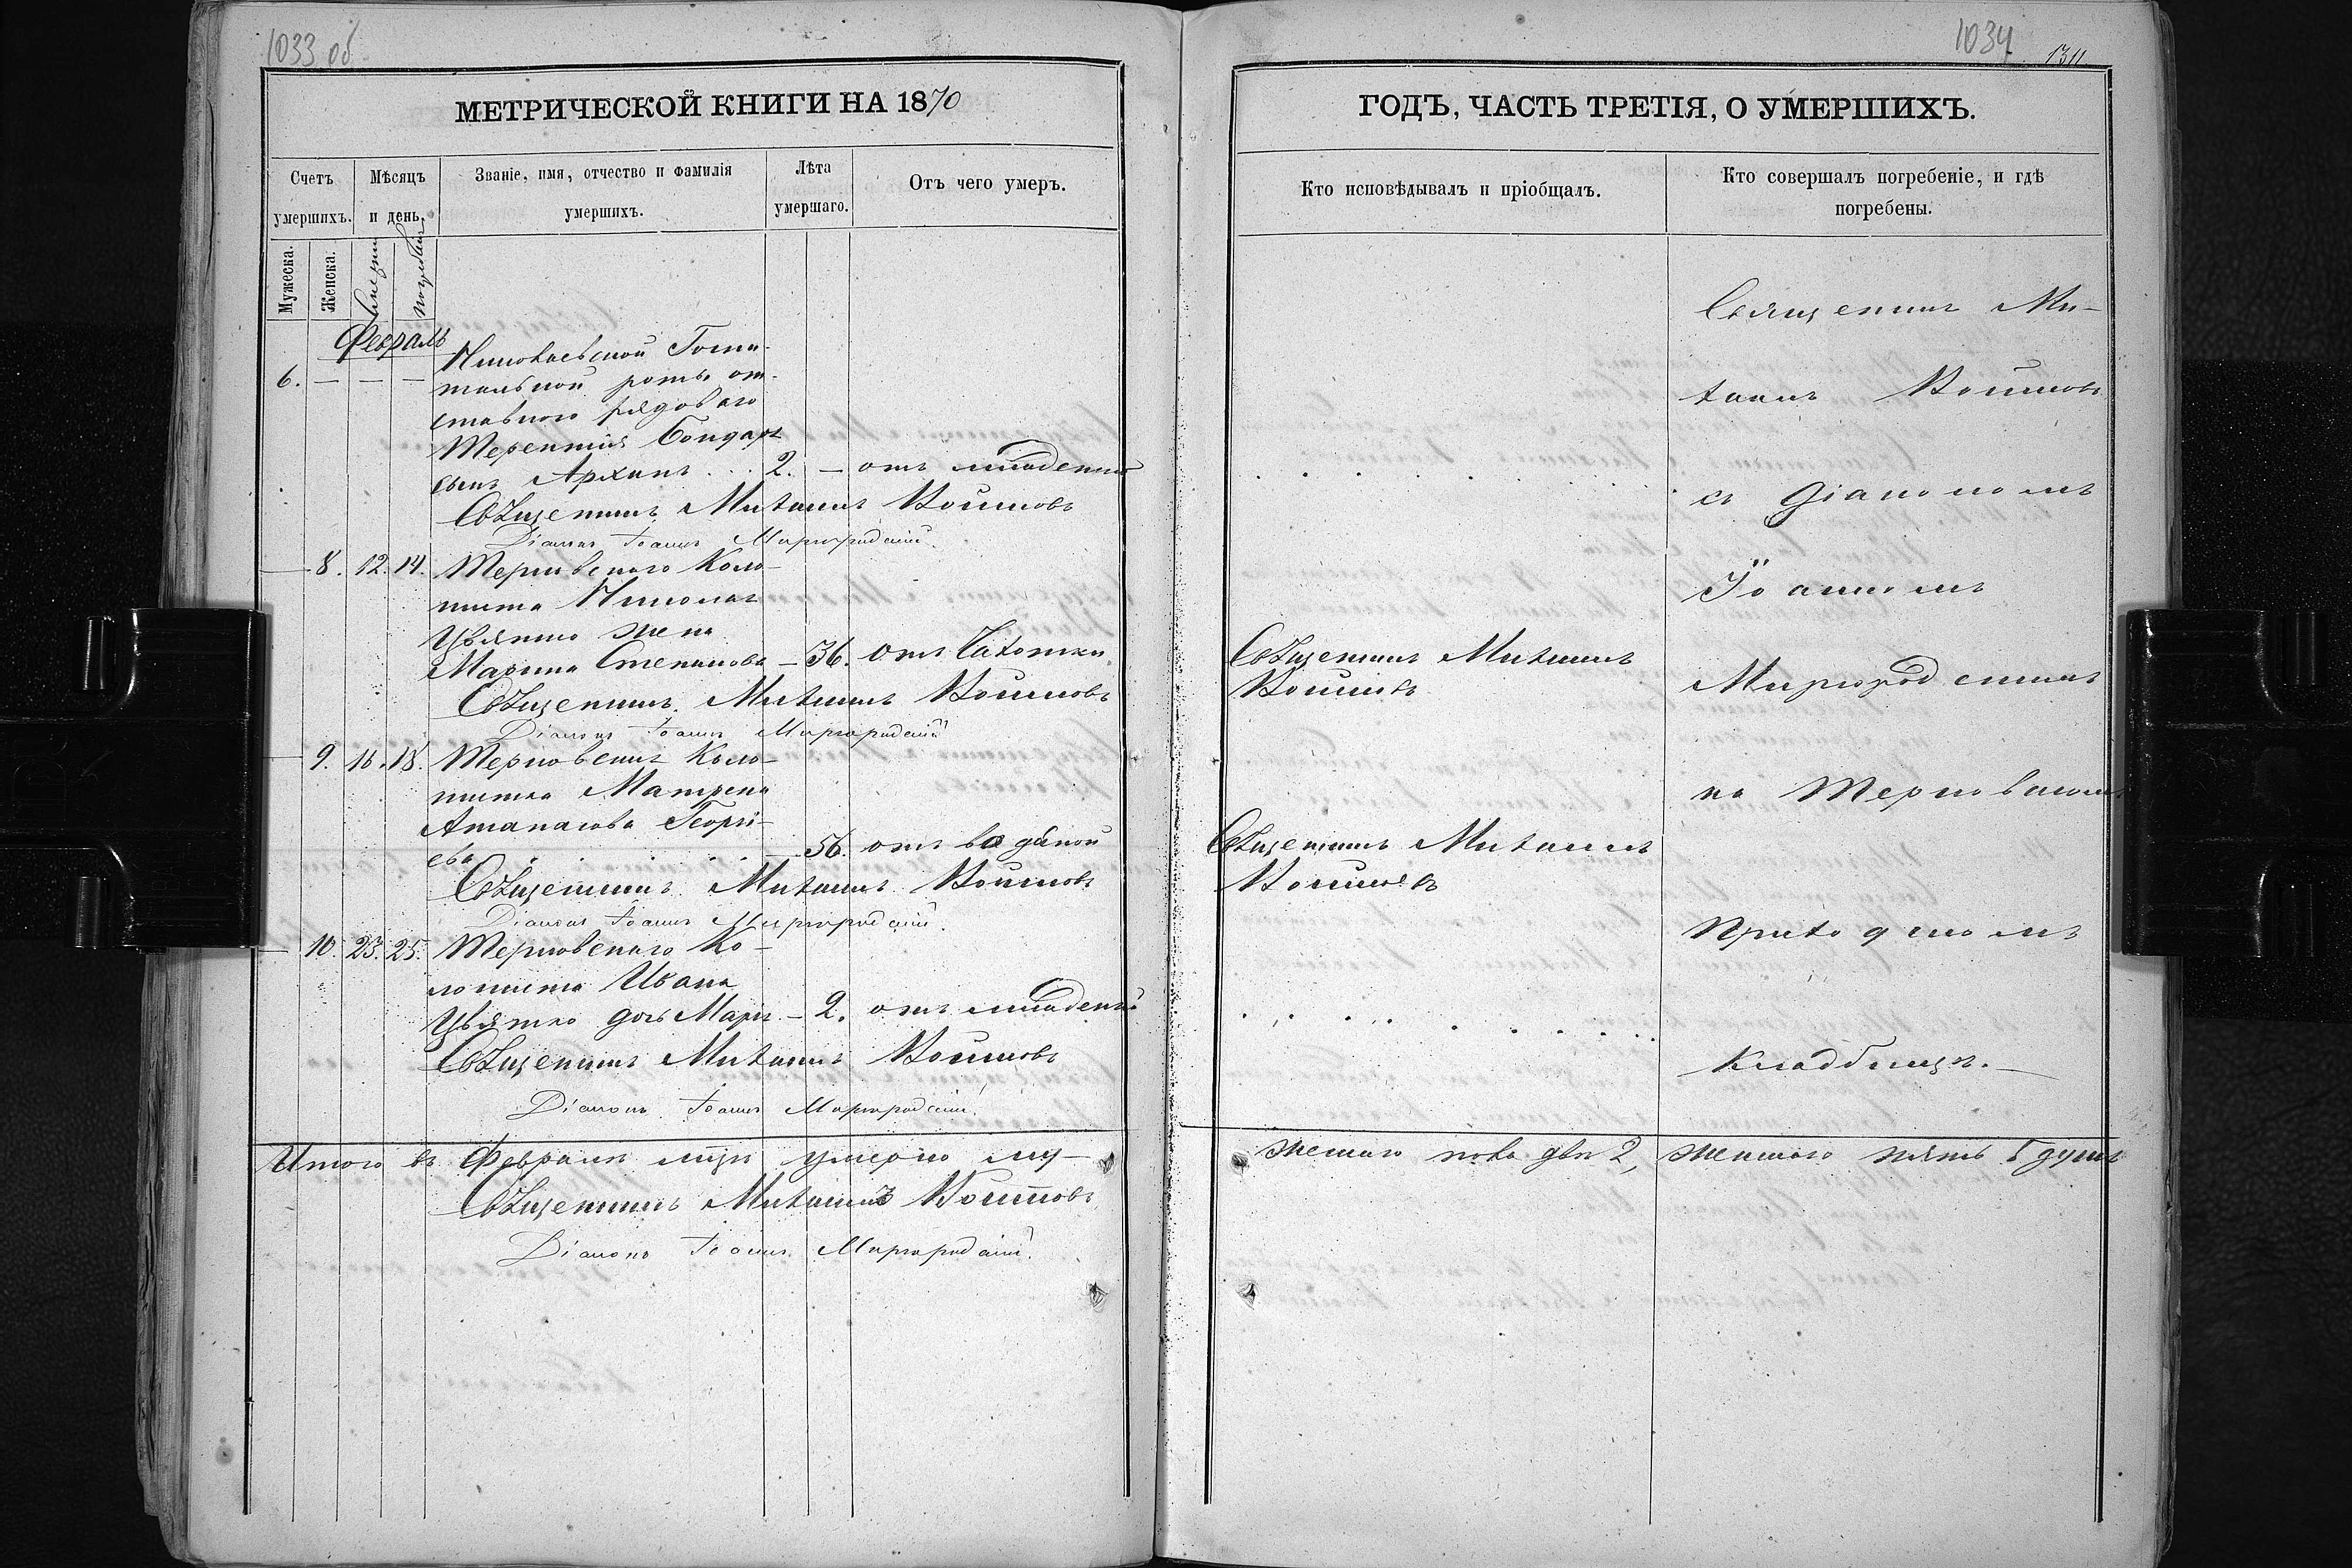 1033 об
МЕТРИЧЕСКОЙ КНИГИ НА 1870
Счетъ умершихъ.
Мѣсяцъ и день.
Званіе, имя, отчество и фамилія умершихъ.
Лѣта умершаго.
Отъ чего умеръ.
Мужеска.
Женска.
Февраль
6. — — — Николаевской Госпи-
тальной роты от-
ставного рядоваго
Терентія Бондаря
сынъ Архипъ . . . 2. — отъ младенч
Священникъ Михаилъ Воиновъ
Діаконъ Іоаннъ Миргородскій.
— 8. 12. 14. Терновскаго Коло-
ниста Николая
Цвятко жена
Марина Степанова — 36. Отъ Чахотки
Священникъ Михаилъ Воиновъ
Діаконъ Іоаннъ Миргородскій
— 9. 16. 18. Терновская Коло-
нистка Матрена
Атанасова Георгі-
ева — 56. отъ водяной
Священникъ Михаилъ Воиновъ
Діаконъ Іоаннъ Миргородскій.
— 10. 23. 25. Терновскаго Ко-
лониста Ивана
Цвятко дочь Марія — 2. отъ младенч
Священникъ Михаилъ Воиновъ
Діаконъ Іоаннъ Миргородскій.
Итого въ Февралѣ мцѣ умерло му-
Священникъ Михаилъ Воиновъ
Діаконъ Іоаннъ Миргородскій.
1034
1311
ГОДЪ, ЧАСТЬ ТРЕТІЯ, О УМЕРШИХЪ.
Кто исповѣдывалъ и пріобщалъ.
Кто совершалъ погребеніе, и гдѣ погребены.
Священникъ Ми-
хаилъ Воиновъ
съ Діакономъ
Іоанномъ
Священникъ Михаилъ
Воиновъ
Миргородскимъ
на Терновскомъ
Священникъ Михаилъ
Воиновъ
Приходскомъ
Кладбищѣ. —
жескаго пола два 2, женскаго пять 5 душъ